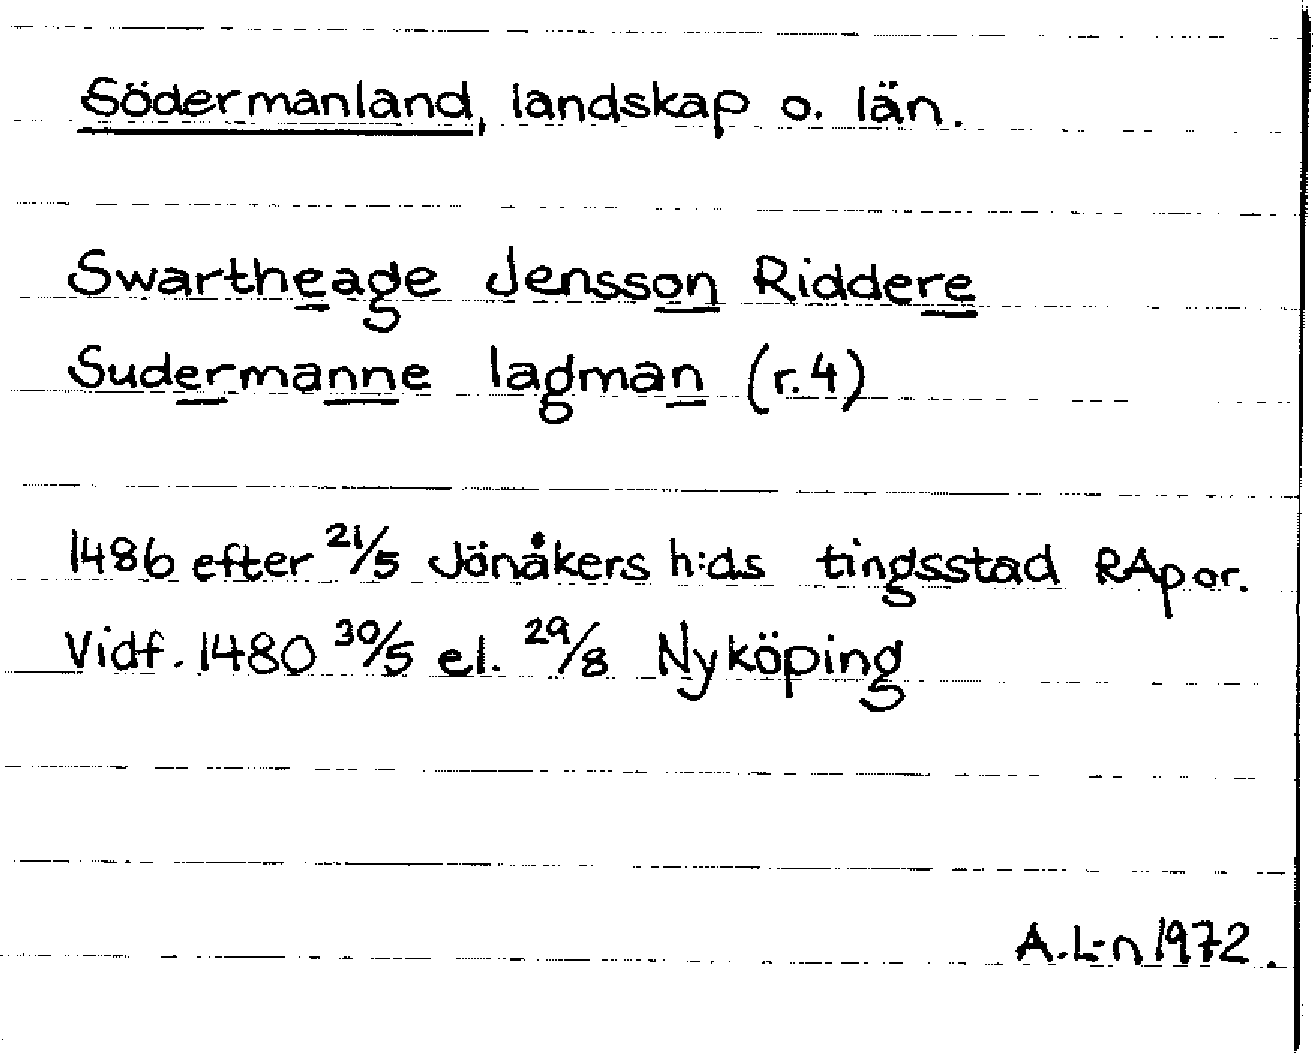 Södermanland, landskap o. län.
Swartheage Jensson Riddere
Sudermanne lagman (r. 4)
1486 efter 21/5 Jönåkers h:ds tingsstad RAp or.
Vidf. 1480 30/5 el. 29/8 Nyköping
A. L-n 1972.